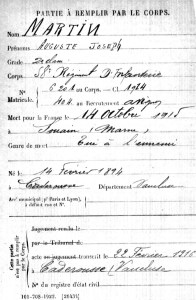 PARTIE À REMPLIR PAR LE CORPS.
Nom MARTIN
Prénoms AUGUSTE JOSEPH
Grade
Corps 58e Régiment D'Infanterie
N° au Corps. — Cl. 1914
Matricule. au Recrutement
Mort pour la France le 14 Octobre 1915
à Souain (Marne)
Genre de mort Tué à l'ennemi
Né le 14 Février 1894
à Département Vaucluse
Arr' municipal (p' Paris et Lyon),
à défaut rue et N°.
Cette partie
n'est pas à remplir
par le Corps.
Jugement rendu le
par le Tribunal de
acte ou jugement transcrit le 22 Février 1916
à Caderousse (Vaucluse)
N° du registre d'état civil
101-708-1922. [26434]